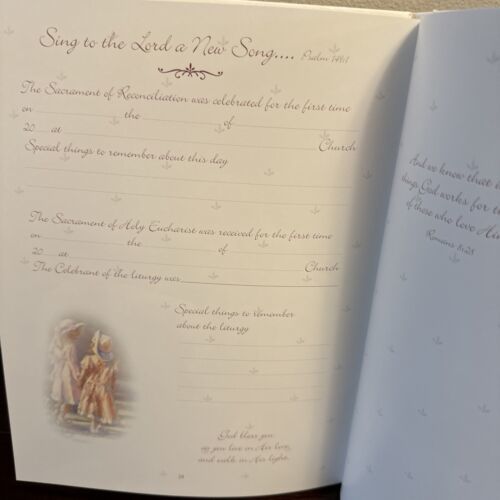 Sing to the Lord a New Song.... Psalm 149:1
The Sacrament of Reconciliation was celebrated for the first time
on the of
20 at Church
Special things to remember about this day
The Sacrament of Holy Eucharist was received for the first time
on the of
20 at Church
The Celebrant of the liturgy was
Special things to remember
about the liturgy
God bless you
as you live in His love,
and walk in His light.
And we know that
things God works for
of those who love Him
Romans 8:28